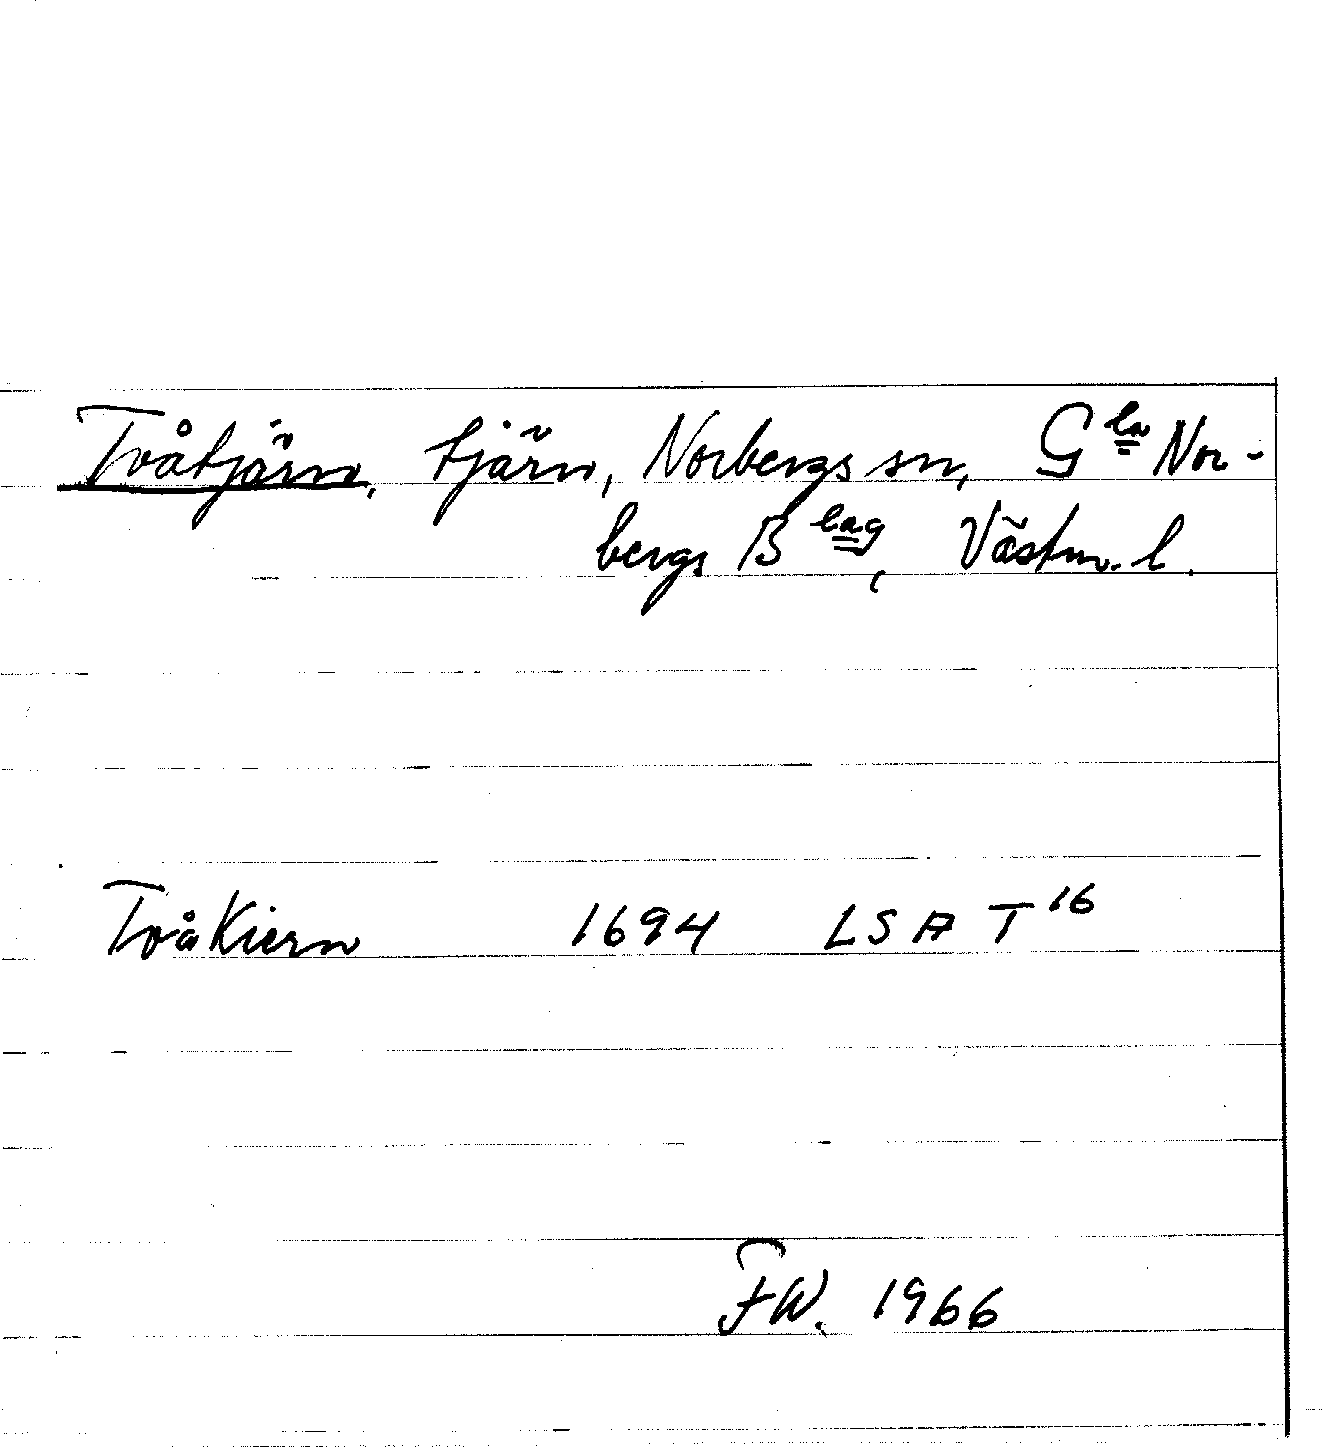 Tvåtjärn, tjärn, Norbergs sn, Gla Nor-
bergs Blag, Västm. l.
TvåKiern 1694 LSA T16
FW. 1966